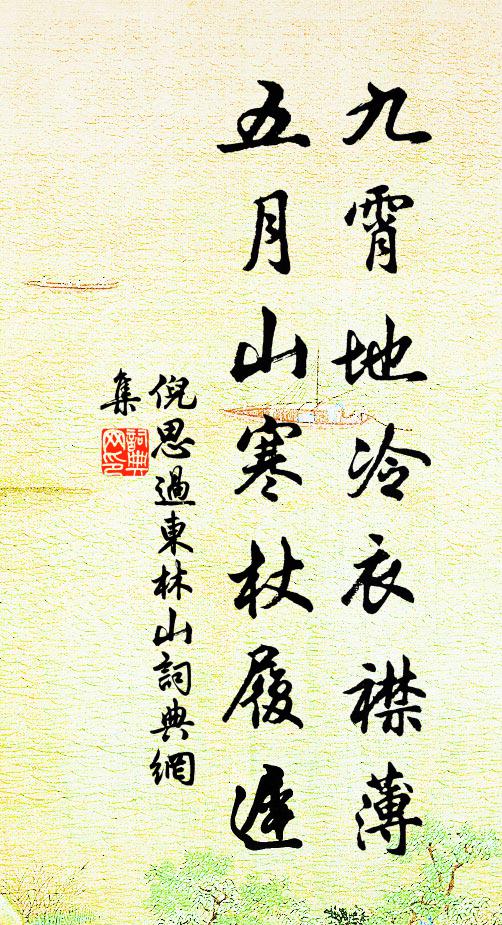 九霄地冷衣襟薄
五月山寒杖履遲
倪思過東林山詞典網
集
詞典
網印